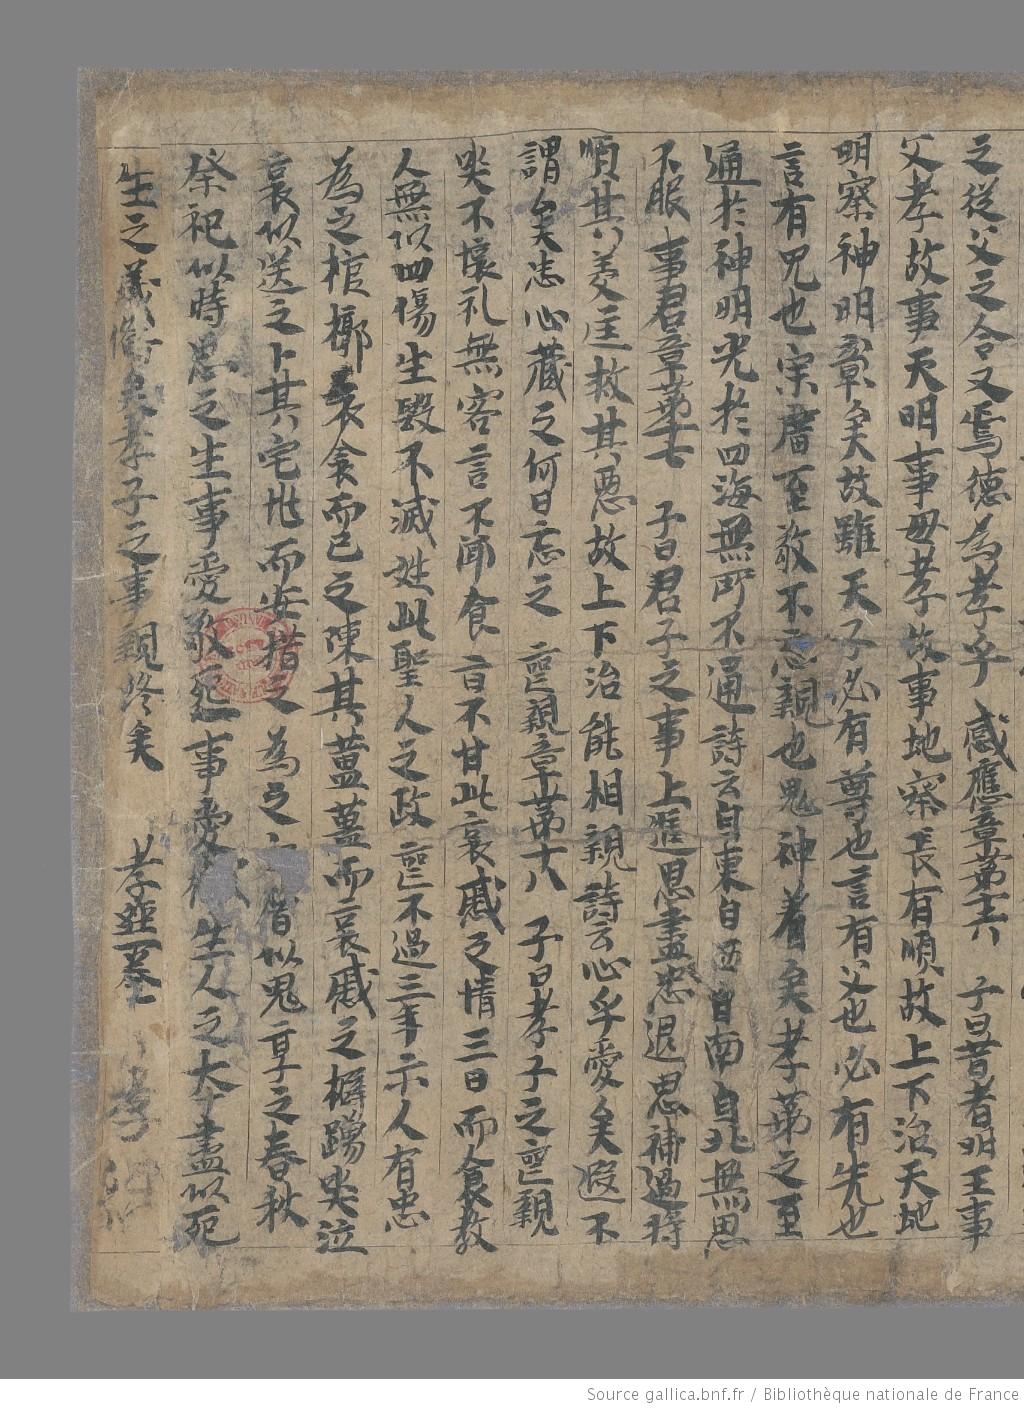 之從父之令又焉德為孝乎　感應章第十六　子曰昔者明王事
父孝故事天明事毋孝故事地察長有順故上下治天地
明察神明彰矣故雖天子必有尊也言有父也必有先也
言有兄也宗廟至敬不忘親也鬼神著矣孝苐之至
通於神明光於四海無所不通詩云自東自西自南自北無思
不服　事君章第十七　子曰君子之事上進思盡忠退思補過將
順其美匡救其惡故上下治能相親詩云心乎愛矣遐不
謂矣忠心藏之何日忘之　喪親章第十八　子曰孝子之喪親
哭不懷礼無容言不聞食旨不甘此哀慼之情三日而食教
人無以四傷生毀不滅姓此聖人之政喪不過三年示人有忠
為之棺槨衣食而已之陳其簠簋而哀慼之擗踴哭泣
哀以送之卜其宅地而安措之為之　庿以鬼享之春秋
祭祀以時思之生事愛敬死事愛　生人之大夲盡以死
生之義俻矣孝子之事親終矣　孝經一卷
孝
Source gallica.bnf.fr / Bibliothèque nationale de France